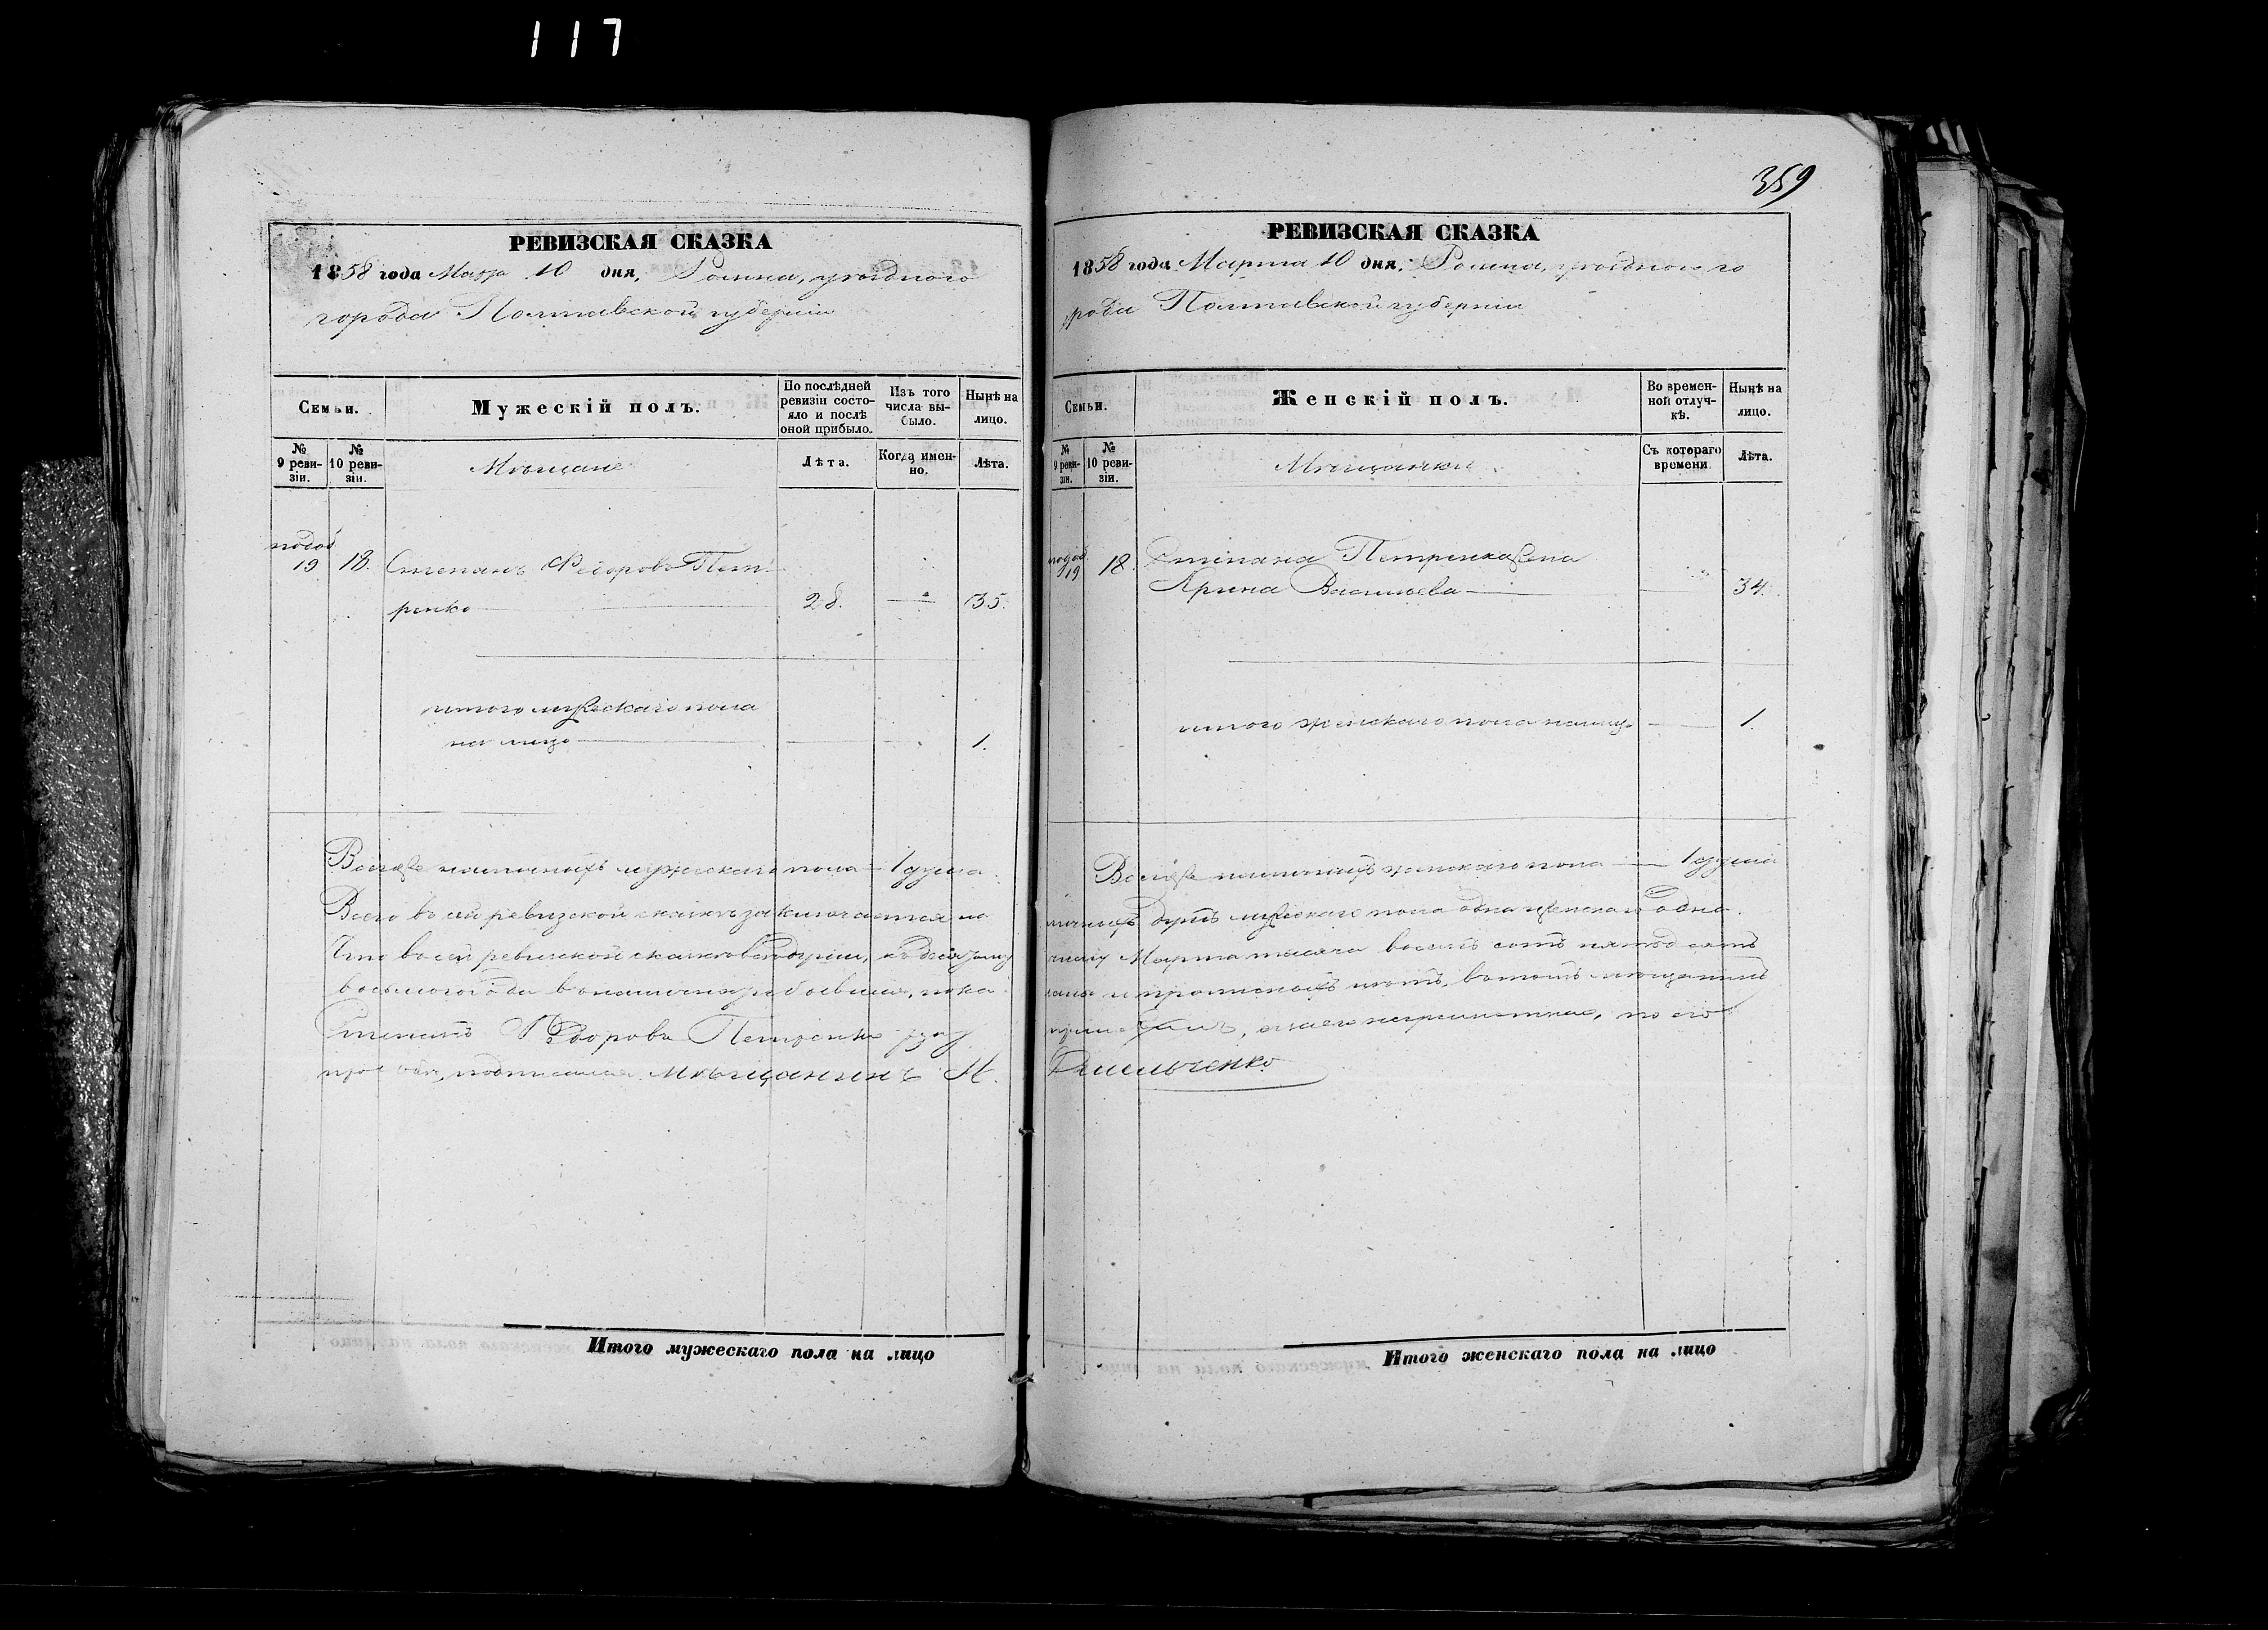 117
РЕВИЗСКАЯ СКАЗКА
1858 года Марта 10 дня. Ромна, уѣзднаго
города Полтавской губерніи
Семьи.
Мужескій полъ.
По послѣдней ревизіи состояло и послѣ оной прибыло.
Изъ того числа выбыло.
Нынѣ на лицо.
№ 9 ревизіи.
№ 10 ревизіи.
Мѣщане
Лѣта.
Когда именно.
Лѣта.
19 18. Степанъ Федоровъ Пет-
ренко 28. — 35.
итого мужескаго пола
на лицо 1.
Всѣхъ наличныхъ мужескаго пола — 1 душа
Всего въ сей ревизской сказкѣ заключается на
Что въ сей ревизской сказкѣ всѣ души, къ десятому
восьмого года въ наличіи, пока
Степанъ Федоровъ Петренко
подписался мѣщанинъ
Итого мужескаго пола на лицо
359
РЕВИЗСКАЯ СКАЗКА
1858 года Марта 10 дня. Ромна, уѣзднаго го
рода Полтавской губерніи
Семьи.
Женскій полъ.
Во временной отлучкѣ.
Нынѣ на лицо.
№ 9 ревизіи.
№ 10 ревизіи.
Мѣщанки
Съ котораго времени.
Лѣта.
19 18. Степана Петренка жена
Арина Васильева — 34.
итого женскаго пола налицо — 1.
Всѣхъ наличныхъ женскаго пола — 1 душа
личныхъ душъ мужескаго пола одна женскаго одна.
числу Марта тысяча восемь сотъ пятьдесятъ
и прописныхъ нѣтъ, въ томъ мѣщанинъ
по его
Омельченко
Итого женскаго пола на лицо